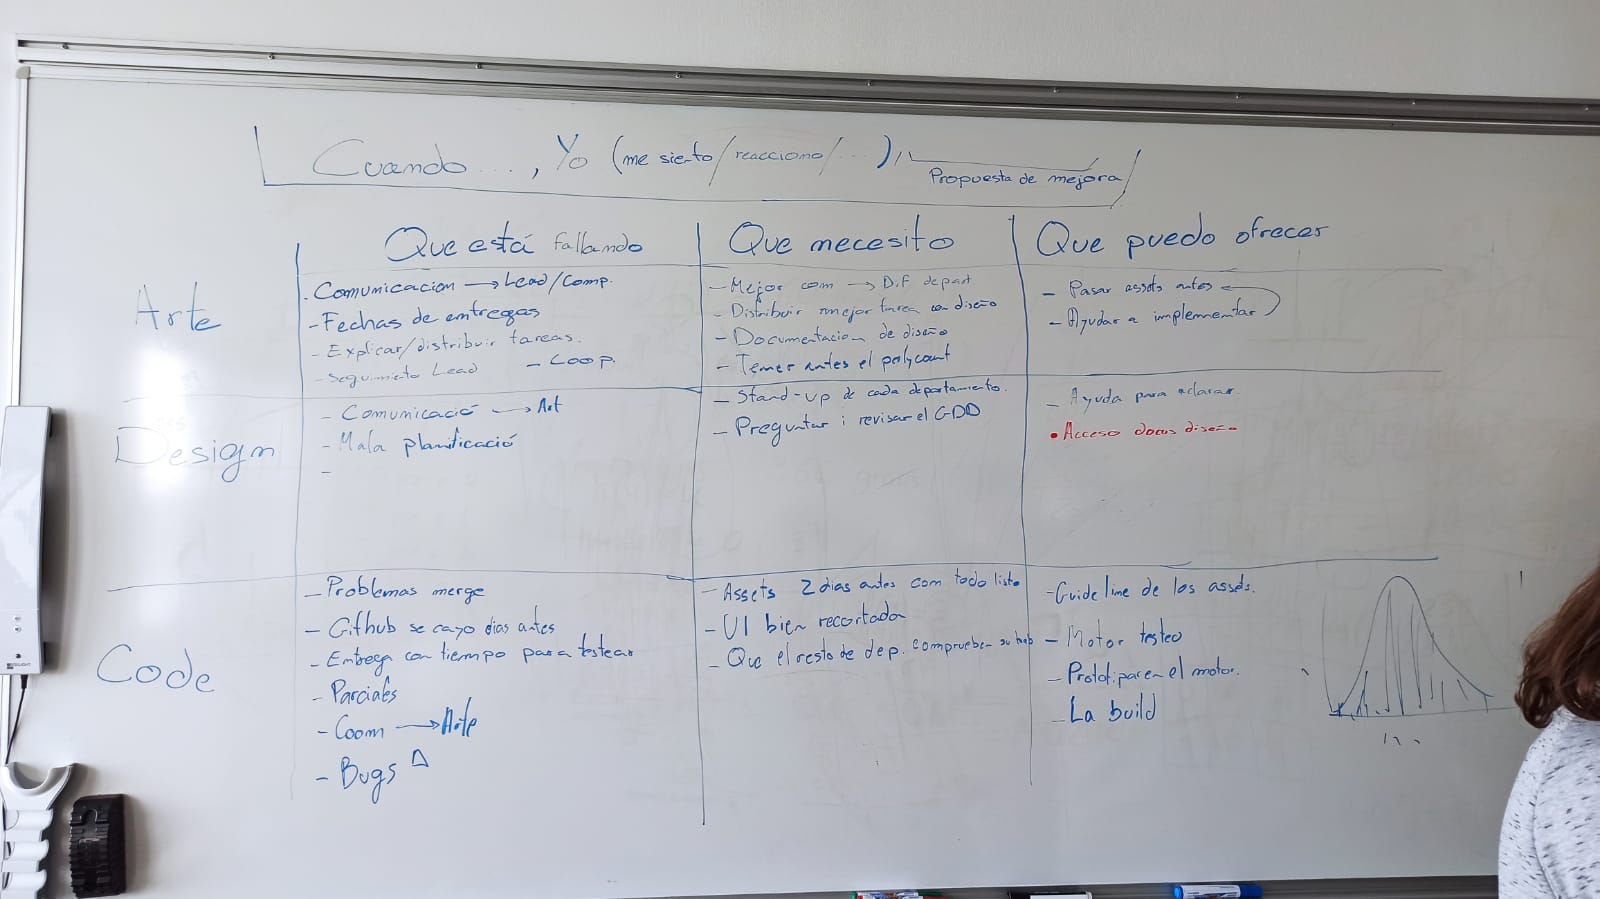 Cuando ..., Yo (me siento/reacciono/...),
Propuesta de mejora
Que está fallando
Que necesito
Que puedo ofrecer
Arte
. Comunicacion → Lead/Comp.
- Fechas de entregas
- Explicar/distribuir tareas.
- Seguimiento Lead - Coop.
- Mejor com → Dif depart
- Distribuir mejor tarea con diseño
- Documentacion de diseño
- Tener antes el polycount
- Pasar assets antes
- Ayudar a implementar
Design
- Comunicació → Art
- Mala planificació
-
- Stand-up de cada departamento.
- Preguntar i revisar el GDD
- Ayuda para aclarar.
• Acceso docus diseño
Code
- Problemas merge
- Github se cayo dias antes
- Entrega con tiempo para testear
- Parciales
- Coom → Arte
- Bugs
- Assets 2 dias antes con todo listo
- UI bien recortada
- Que el resto de dep. comprueben su trab
- Guideline de los assets.
- Motor testeo
- Prototipar en el motor.
- La build